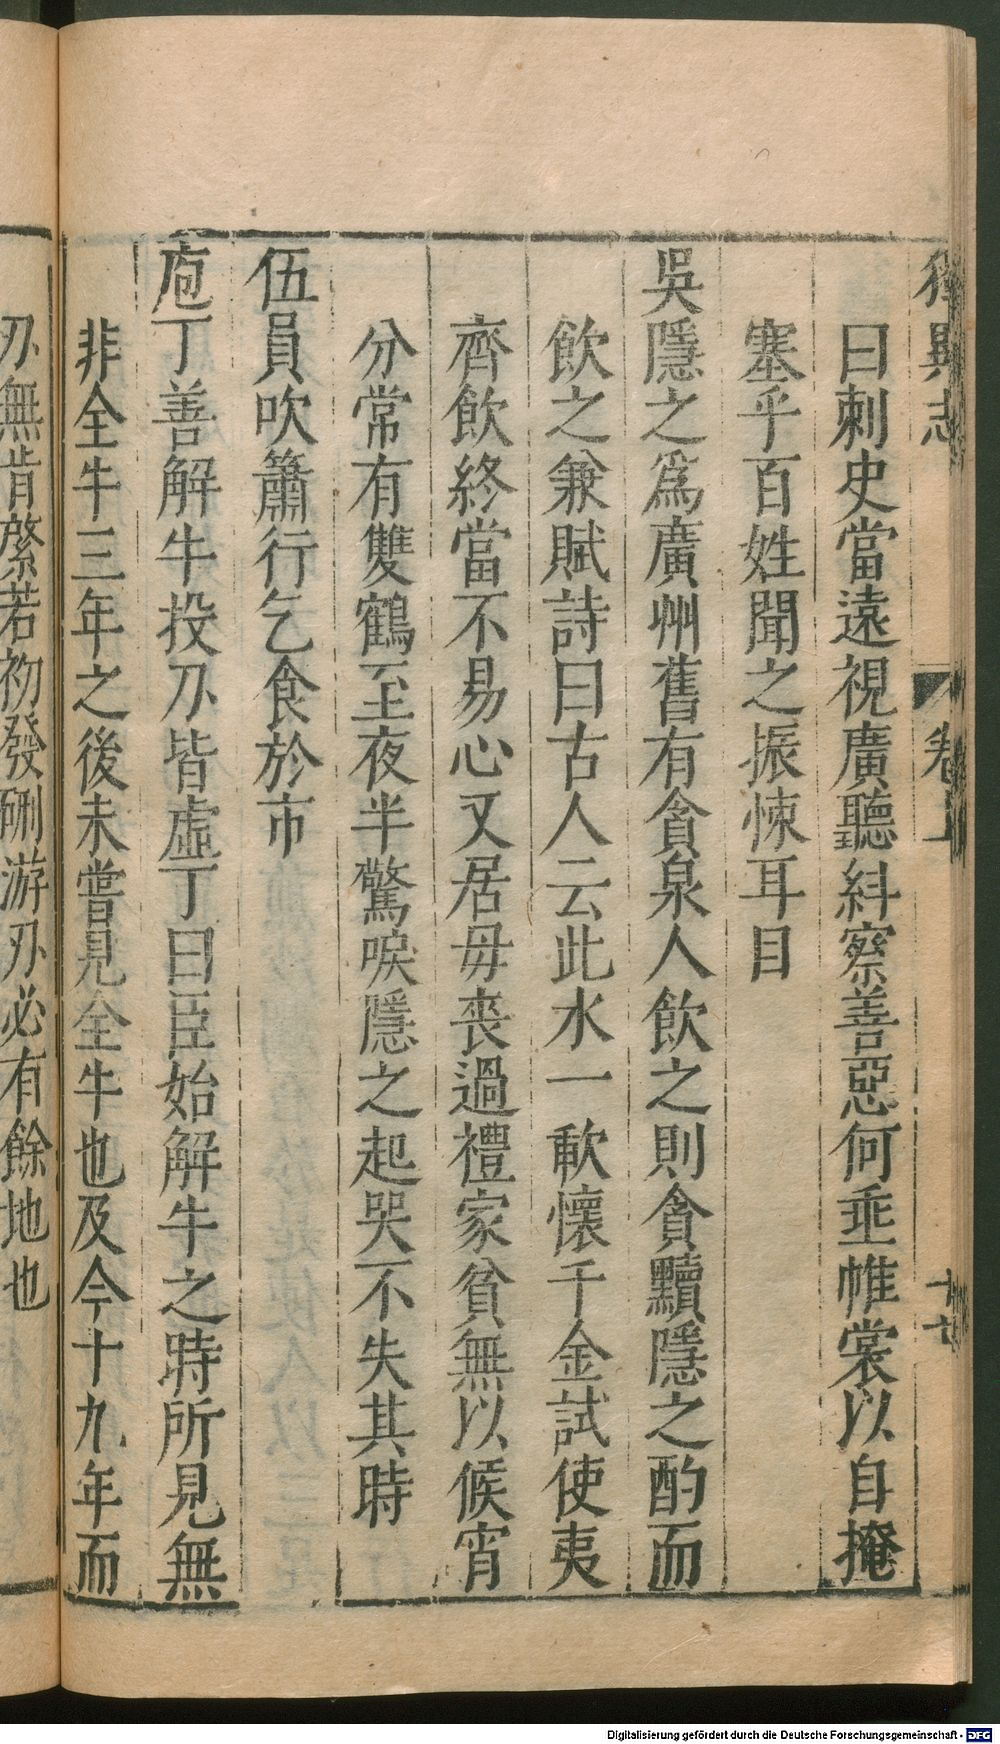 獨異志 卷上 十七
曰刺史當遠視廣聽糾察善惡何乖帷裳以自掩
塞乎百姓聞之振悚耳目
吳隱之爲廣州舊有貪泉人飲之則貪黷隱之酌而
飲之兼賦詩曰古人云此水一㰱懷千金試使夷
齊飲終當不易心又居毋喪過禮家貧無以候宵
分常有雙鶴至夜半驚唳隱之起哭不失其時
伍員吹簫行乞食於市
庖丁善解牛投刃皆虛丁曰臣始解牛之時所見無
非全牛三年之後未嘗見全牛也及今十九年而
刃無肯綮若初發硎游刃必有餘地也
Digitalisierung gefördert durch die Deutsche Forschungsgemeinschaft - DFG